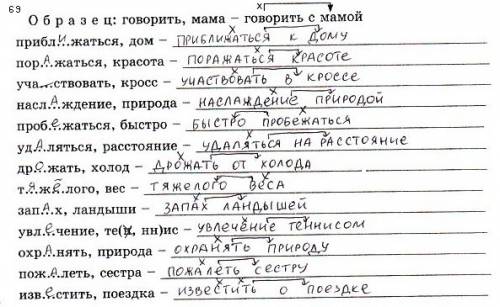 69
Образец: говорить, мама – говорить с мамой
прибл и жаться, дом – ПРИБЛИЖАТЬСЯ К ДОМУ
пор А жаться, красота – ПОРАЖАТЬСЯ КРАСОТЕ
уча ствовать, кросс – УЧАСТВОВАТЬ В КРОССЕ
насл А ждение, природа – НАСЛАЖДЕНИЕ ПРИРОДОЙ
проб е жаться, быстро – БЫСТРО ПРОБЕЖАТЬСЯ
уд А ляться, расстояние – УДАЛЯТЬСЯ НА РАССТОЯНИЕ
др о жать, холод – ДРОЖАТЬ ОТ ХОЛОДА
т я ж ё лого, вес – ТЯЖЕЛОГО ВЕСА
зап А х, ландыши – ЗАПАХ ЛАНДЫШЕЙ
увл е чение, те(н, нн)ис – УВЛЕЧЕНИЕ ТЕННИСОМ
охр А нять, природа – ОХРАНЯТЬ ПРИРОДУ
пож А леть, сестра – ПОЖАЛЕТЬ СЕСТРУ
изв е стить, поездка – ИЗВЕСТИТЬ О ПОЕЗДКЕ